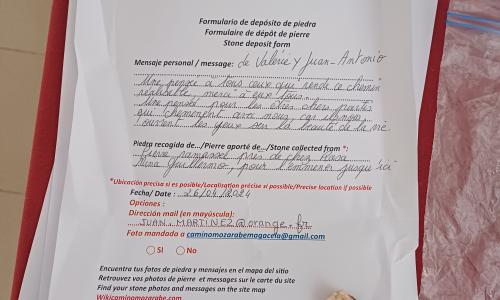 Formulario de depósito de piedra
Formulaire de dépôt de pierre
Stone deposit form
Mensaje personal / message: de Valérie y Juan-Antonio
Une pensée à tous ceux qui rende ce chemin
réalisable, merci à eux tous.
Une pensée pour les êtres chers partis
qui cheminent avec nous, car
ouvrent les yeux sur la beauté de la vie
Piedra recogida de.../Pierre aporté de.../Stone collected from *:
Pierre ramassé près de chez
Guillermo, pour l'emmener jusqu'ici
*Ubicación precisa si es posible/Localisation précise si possible/Precise location if possible
Fecha/ Date : 26/04/2024
Opciones :
Dirección mail (en mayúscula):
JUAN.MARTINEZ@orange.fr
Foto mandada a caminomozarabemagacela@gmail.com
SI No
Encuentra tus fotos de piedra y mensajes en el mapa del sitio
Retrouvez vos photos de pierre et messages sur le carte du site
Find your stone photos and messages on the site map
Wikicaminomozarabe.com